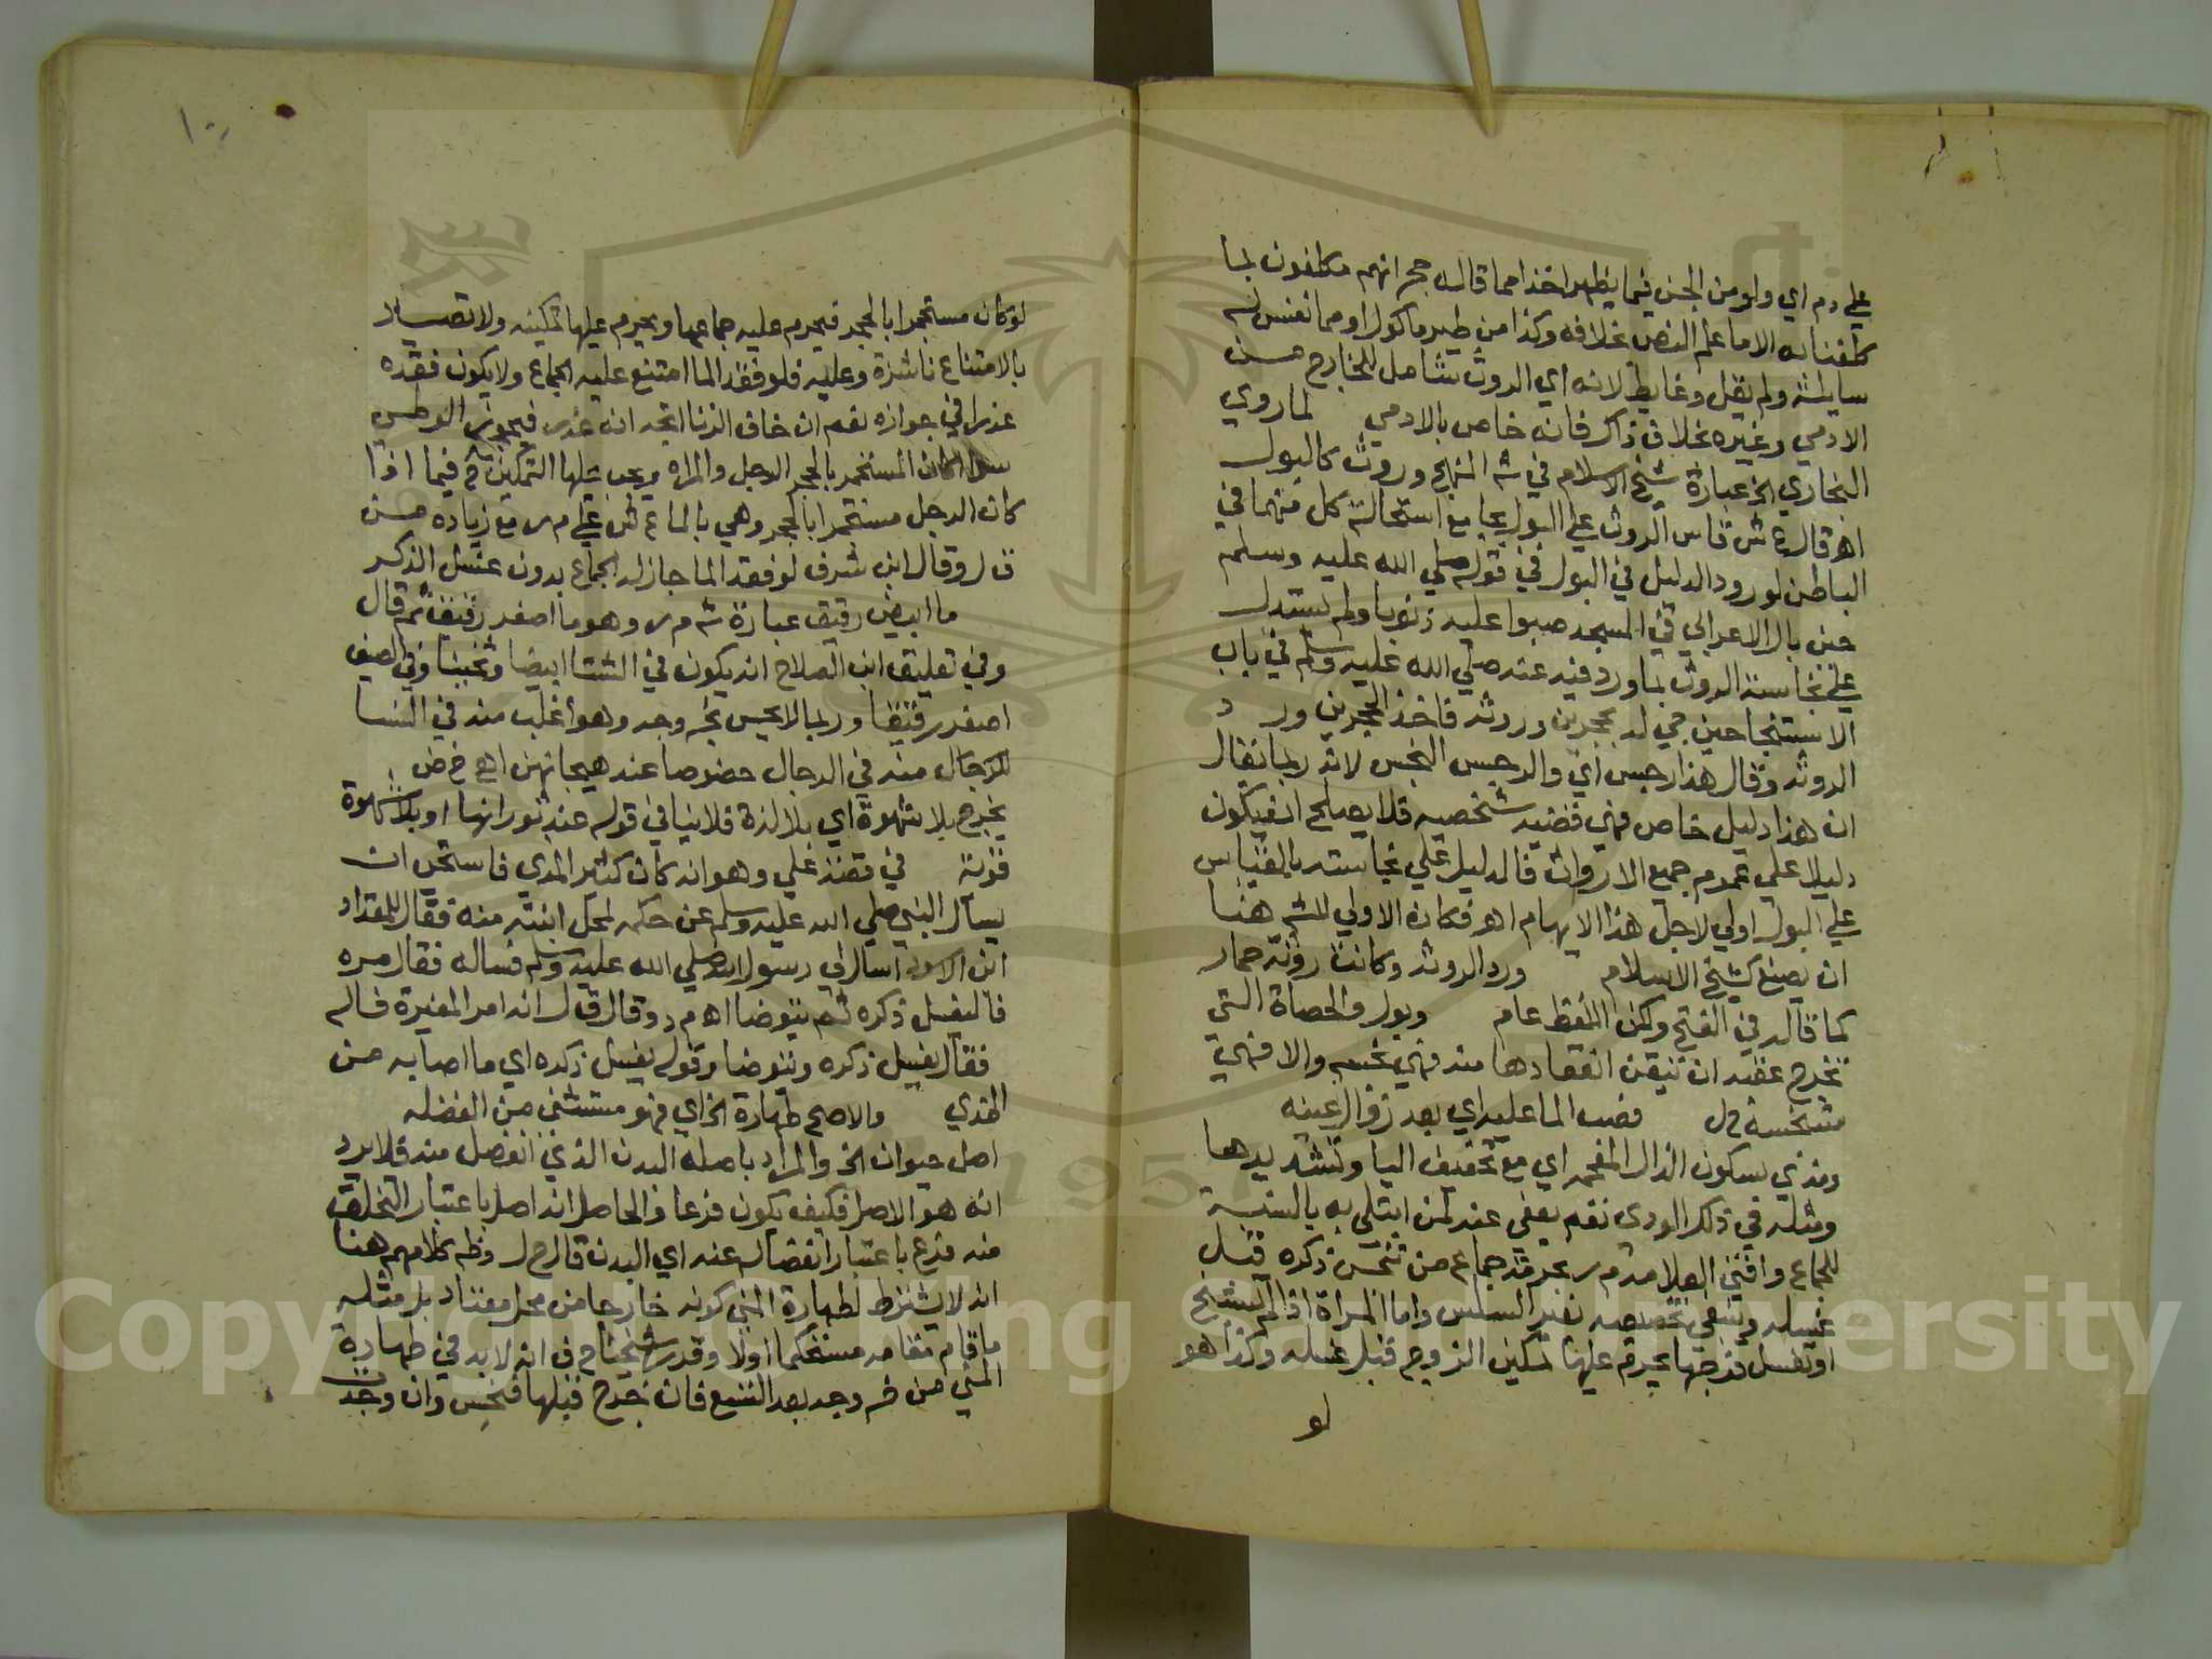 علي دم اي ولو من الجن فيما يظهر اخذا مما قاله حج انهم مكلفون بما
كلفنا به الا ما علم النص بخلافه وكذا من طير ماكول او مما نفس له
سايلة ولم يقل وغايط لانه اي الروث شامل للخارج من
الادمي وغيره بخلاف ذاك فانه خاص بالادمي لما روي
البخاري الخ عبارة شيخ الاسلام في شه المنهج وروث كالبول
اهـ قال ع ش قاس الروث علي البول بجامع استحالة كل منهما في
الباطن لورود الدليل في البول في قوله صلي الله عليه وسلم
حين بال الاعرابي في المسجد صبوا عليه ذنوبا ولم يستدل
علي نجاسة الروث بما ورد فيه عنه صلي الله عليه وسلم في باب
الاستنجا حين جي له بحجرين وروثه فاخذ الحجرين ورد
الروثه وقال هذا رجس اي والرجس النجس لانه ربما يقال
ان هذا دليل خاص فهي قضيه شخصيه فلا يصلح ان يكون
دليلا علي عموم جميع الارواث فالدليل علي نجاسته بالقياس
علي البول اولي لاجل هذا الايهام اهـ فكان الاولي للشه هنا
ان يصنع كشيخ الاسلام ورد الروثه وكانت روثة حمار
كما قاله في الفتح ولكن اللفظ عام وبول والحصاة التي
تخرج عقبه ان تيقن انعقادها منه فهي نجسه والا فهي
متنجسة ق ل فصب الما عليه اي بعد زوال عينه
ومذي بسكون الذال المعجمه اي مع تخفيف اليا وتشديدها
ومثله في ذلك الودي نعم يعفي عنه لمن ابتلي به بالنسبة
للجماع وافتي العلامه م ر بحرمة جماع من تنجس ذكره قبل
غسله وينبغي تخصيصه بغير السلس واما المراة اذا لم تستنج
او تغسل فرجها يحرم عليها تمكين الزوج قبل غسله وكذا هو
لو
لو كان مستجمرا بالحجر فيحرم عليه جماعها ويحرم عليها تمكينه ولا تصير
بالامتناع ناشزة وعليه فلو فقد الما امتنع عليه الجماع ولا يكون فقده
عذرا في جوازه نعم ان خاف الزنا اتجه انه عذر فيجوز الوطي
سوا كان المستجمر بالحجر الرجل والمراه ويجب عليها التمكين ح فيما اذا
كان الرجل مستجمرا بالحجر وهي بالما ع ش علي م ر مع زياده من
ق ل وقال ابن شرف لو فقد الما جاز له الجماع بدون غسل الذكر
ما ابيض رقيق عبارة شه م ر وهو ما اصفر رقيق ثم قال
وفي تعليق ابن الصلاح انه يكون في الشتا ابيضا وثخينا وفي الصيف
اصفر رقيقا وربما لا يحس بخروجه وهو اغلب منه في النسا
للرجال منه في الرجال خصوصا عند هيجانهن اهـ خ ض
يخرج بلا شهوة اي بلا لذة فلا ينافي قوله عند ثورانها او بلا شهوة
قوية في قصة علي وهو انه كان كثير المذي فاستحي ان
يسال النبي صلي الله عليه وسلم عن حكمه لمحل ابنته منه فقال للمقداد
ابن الاسود اسال لي رسول الله صلي الله عليه وسلم فساله فقال مره
فاليغسل ذكره ثم يتوضا اهـ م د وقال ق ل انه امر المغيرة فساله
فقال يغسل ذكره ويتوضا وقوله يغسل ذكره اي ما اصابه من
المذي والاصح طهارة الخ اي فهو مستثني من الفضله
اصل حيوان الخ والمراد باصله البدن الذي انفصل منه فلا يرد
انه هو الاصل فكيف يكون فرعا والحاصل انه اصل باعتبار التخلق
منه فرع باعتبار انفصاله عنه اي البدن قال ح ل وظه كلامهم هنا
انه لا يشترط لطهارة المني كونه خارجا من محل معتاد بل مثله
ما قام مقامه مستحكما اولا وقدر شيخنا ح ف انه لابد في طهارة
المني من خروجه بعد التسع فان خرج قبلها فنجس وان وجدت